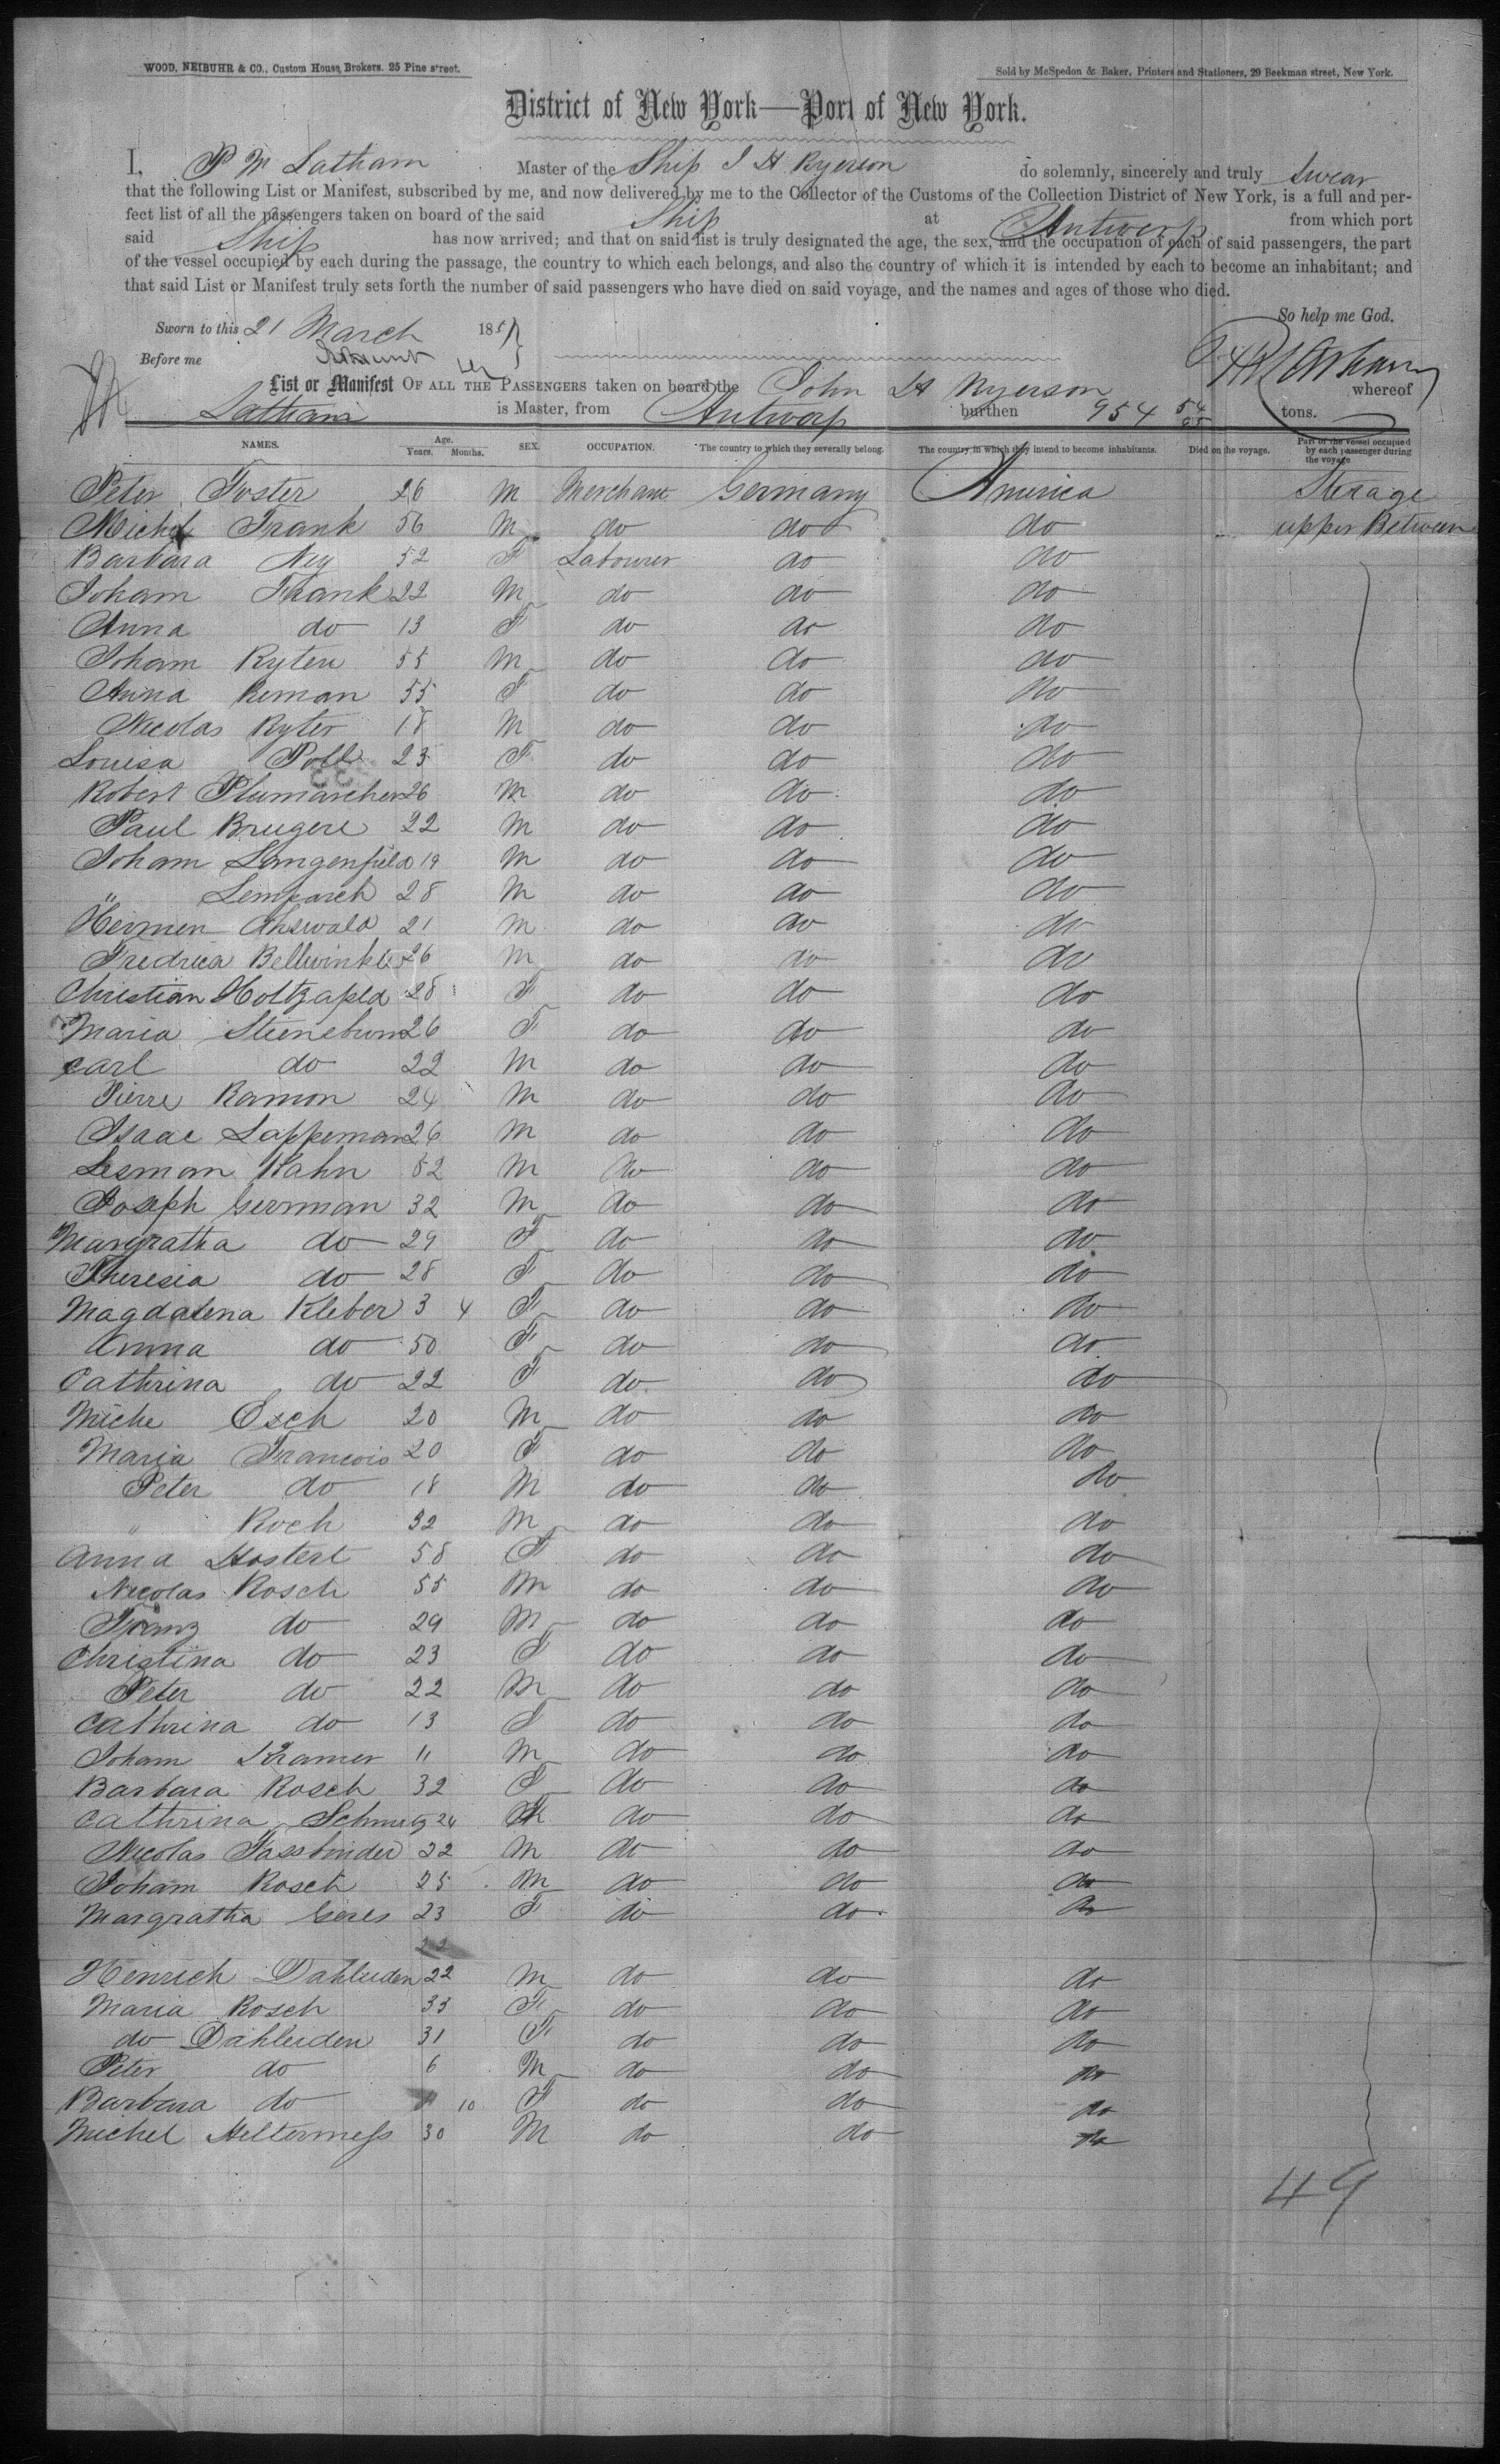 WOOD, NEIBUHR & CO., Custom House Brokers. 25 Pine street.
Sold by McSpedon & Baker, Printers and Stationers, 29 Beekman street, New York.
District of New York—Port of New York.
I, P W Latham Master of the Ship J H Ryerson do solemnly, sincerely and truly swear
that the following List or Manifest, subscribed by me, and now delivered by me to the Collector of the Customs of the Collection District of New York, is a full and per-
fect list of all the passengers taken on board of the said Ship at Antwerp from which port
said Ship has now arrived; and that on said list is truly designated the age, the sex, and the occupation of each of said passengers, the part
of the vessel occupied by each during the passage, the country to which each belongs, and also the country of which it is intended by each to become an inhabitant; and
that said List or Manifest truly sets forth the number of said passengers who have died on said voyage, and the names and ages of those who died.
So help me God.
Sworn to this 21 March 185
Before me
List or Manifest OF ALL THE PASSENGERS taken on board the John H Ryerson whereof
Latham is Master, from Antwerp burthen 954 54/95 tons.
NAMES. Age. Years. Months. SEX. OCCUPATION. The country to which they severally belong. The country in which they intend to become inhabitants. Died on the voyage. Part of the vessel occupied by each passenger during the voyage
Peter Foster 26 M Merchant Germany America Sterage
Michel Frank 56 M do do do upper Between
Barbara Ney 52 F Labourer do do
Joham Frank 22 M do do do
Anna do 13 F do do do
Joham Ryter 55 M do do do
Anna Reman 55 F do do do
Nicolas Ryter 18 M do do do
Louisa Poll 23 F do do do
Robert Plumarcher 26 M do do do
Paul Brugere 22 M do do do
Joham Langenfeld 19 M do do do
" Lemparch 28 M do do do
Hermen Ahswald 21 M do do do
Fredrica Bellwinkle 26 M do do do
Christian Holtzapfld 28 F do do do
Maria Steineburn 26 F do do do
Carl do 22 M do do do
Pierre Ramon 24 M do do do
Isaac Lappeman 26 M do do do
Lesman Kahn 52 M do do do
Joseph German 32 M do do do
Margratha do 29 F do do do
Theresia do 28 F do do do
Magdalena Kleber 3 4 F do do do
Anna do 50 F do do do
Cathrina do 22 F do do do
Miche Esch 20 M do do do
Maria Francois 20 F do do do
Peter do 18 M do do do
" Roch 32 M do do do
Anna Hostert 58 F do do do
Nicolas Rosch 55 M do do do
Franz do 29 M do do do
Christina do 23 F do do do
Peter do 22 M do do do
Cathrina do 13 F do do do
Joham Kramer 11 M do do do
Barbara Rosch 32 F do do do
Cathrina Schmitz 24 F do do do
Nicolas Fassbinder 22 M do do do
Joham Rosch 25 M do do do
Margratha Geres 23 F do do do
22
Henrich Dahleiden 22 M do do do
Maria Rosch 33 F do do do
do Dahleiden 31 F do do do
Peter do 6 M do do do
Barbara do 10 F do do do
Michel Heltermess 30 M do do do
49